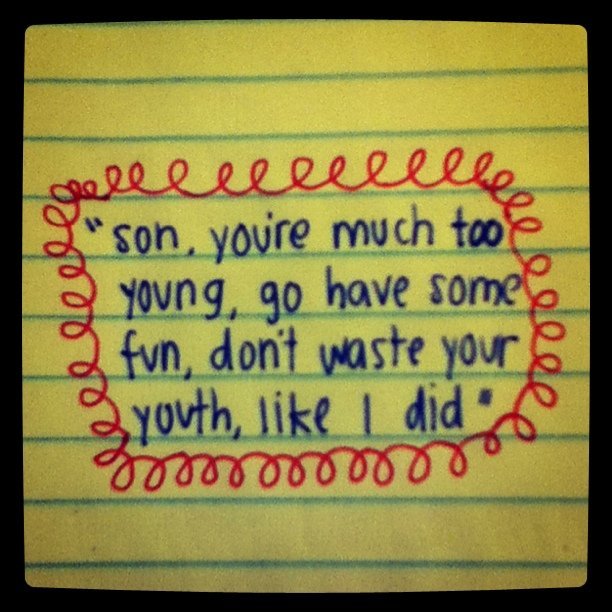 "son, you're much too
young, go have some
fun, don't waste your
youth, like I did"